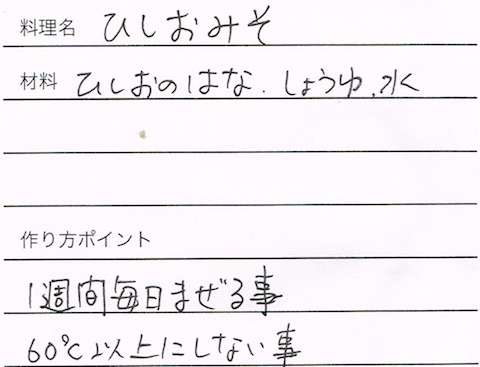 料理名 ひしおみそ
材料 ひしおのはな、しょうゆ、水
作り方ポイント
1週間毎日まぜる事
60℃以上にしない事